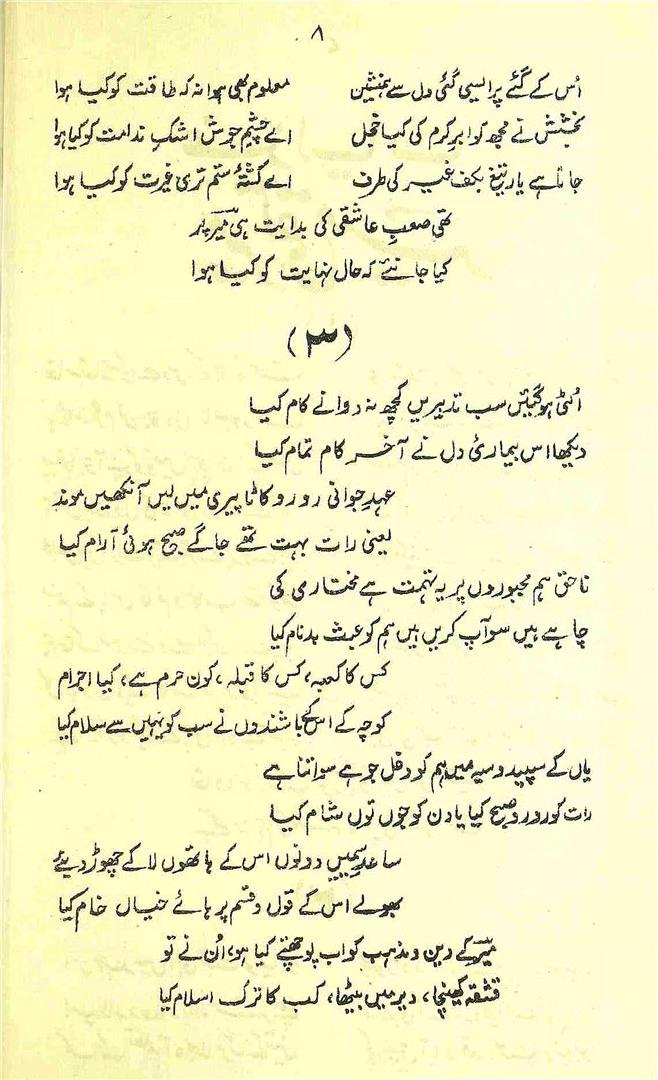 ۸
اُس کے گئے پر ایسی گئی دل سے ہمنشیں معلوم بھی ہوا نہ کہ طاقت کو کیا ہوا
بخشش نے مجھ کو ابرِ کرم کی کیا خجل اے چشم جوشِ اشکِ ندامت کو کیا ہوا
جاتا ہے یار تیغ بکف غیر کی طرف اے کشتۂ ستم تری غیرت کو کیا ہوا
تھی صعبِ عاشقی کی بدایت ہی میرؔ پر
کیا جانئے کہ حال نہایت کو کیا ہوا
(۳)
الٹی ہو گئیں سب تدبیریں کچھ نہ دوا نے کام کیا
دیکھا اس بیماریٔ دل نے آخر کام تمام کیا
عہدِ جوانی رو رو کاٹا پیری میں لیں آنکھیں موند
یعنی رات بہت تھے جاگے صبح ہوئی آرام کیا
ناحق ہم مجبوروں پر یہ تہمت ہے مختاری کی
چاہے ہیں سو آپ کریں ہیں ہم کو عبث بدنام کیا
کس کا کعبہ، کس کا قبلہ، کون حرم ہے، کیا احرام
کوچہ کے اس کے باشندوں نے سب کو یہیں سے سلام کیا
یاں کے سپید و سیہ میں ہم کو دخل جو ہے سو اتنا ہے
رات کو رو رو صبح کیا یا دن کو جوں توں شام کیا
ساعدِ سیمیں دونوں اس کے ہاتھوں لا کے چھوڑ دیئے
بھولے اس کے قول و قسم پر ہائے خیال خام کیا
میرؔ کے دین و مذہب کو اب پوچھتے کیا ہو، اُن نے تو
قشقہ کھینچا، دیر میں بیٹھا، کب کا ترک اسلام کیا